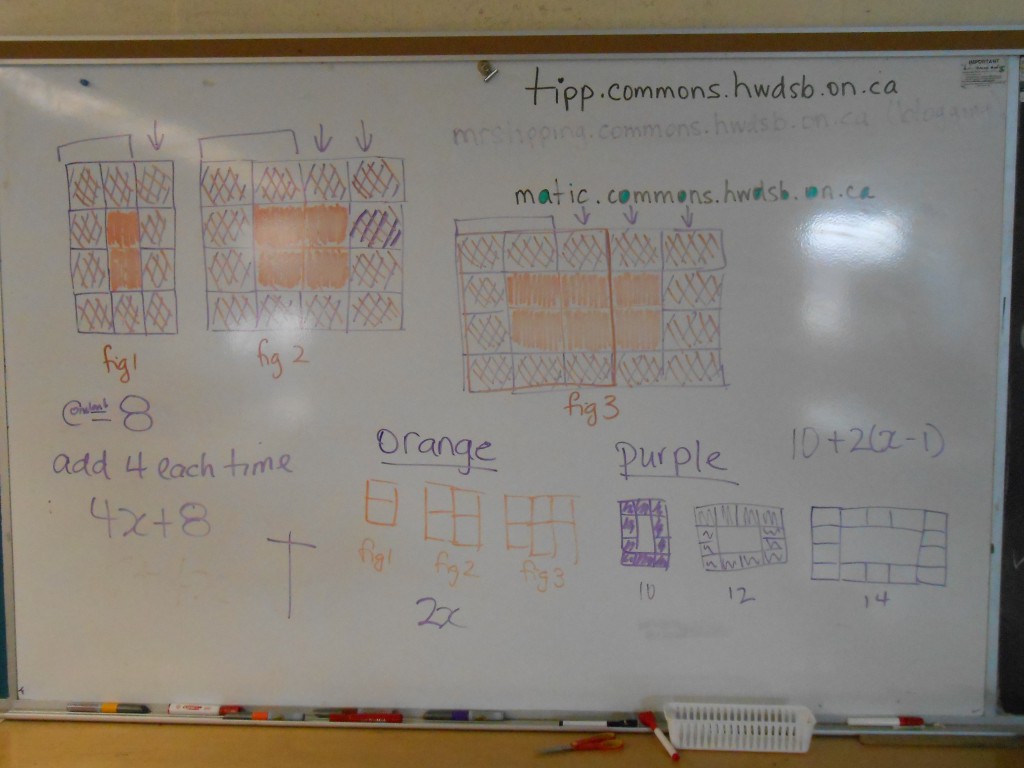 IMPORTANT
tipp.commons.hwdsb.on.ca
mrstipping.commons.hwdsb.on.ca (blogging
matic.commons.hwdsb.on.ca
fig1
fig 2
fig 3
Constant 8
add 4 each time
4x+8
orange
fig1
fig2
fig3
2x
purple
10
12
14
10+2(x-1)